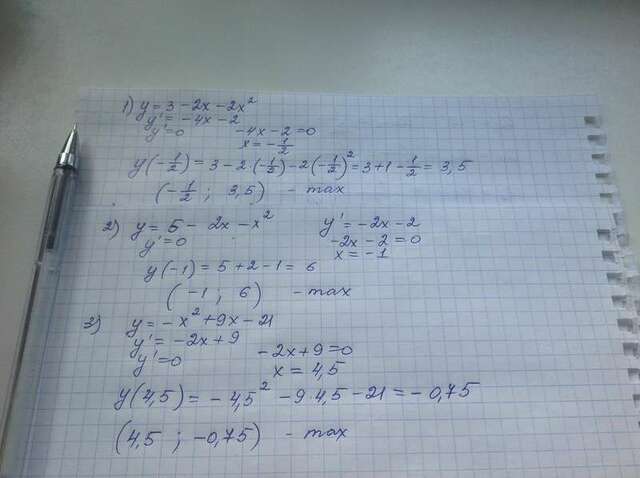 1) y = 3 - 2x - 2x²
y' = -4x - 2
y' = 0 -4x - 2 = 0
x = -1/2
y(-1/2) = 3 - 2·(-1/2) - 2(-1/2)² = 3 + 1 - 1/2 = 3,5
(-1/2 ; 3,5) - max
2) y = 5 - 2x - x² y' = -2x - 2
y' = 0 -2x - 2 = 0
x = -1
y(-1) = 5 + 2 - 1 = 6
(-1 ; 6) - max
3) y = -x² + 9x - 21
y' = -2x + 9
y' = 0 -2x + 9 = 0
x = 4,5
y(4,5) = -4,5² - 9·4,5 - 21 = -0,75
(4,5 ; -0,75) - max